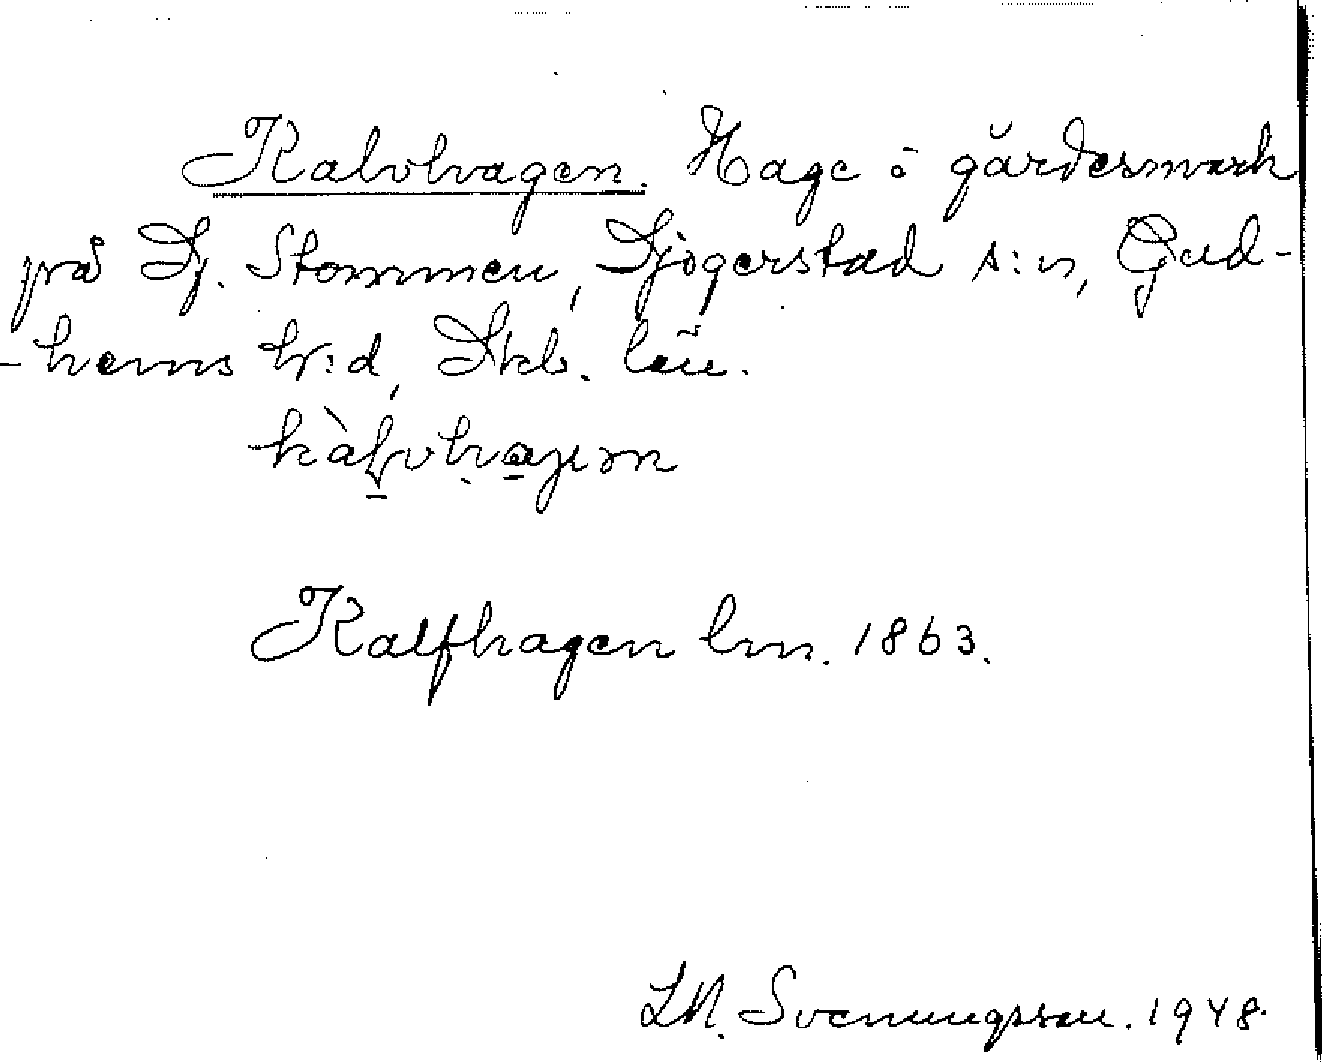 Kalvhagen. Hage o gärdesmark
på Sj. Stommen, Sjogerstad s:n, Gud-
-hems h:d, Skb. län.
kàlvhaɟən
Kalfhagen lm. 1863.
L.M. Svenungsson. 1948.